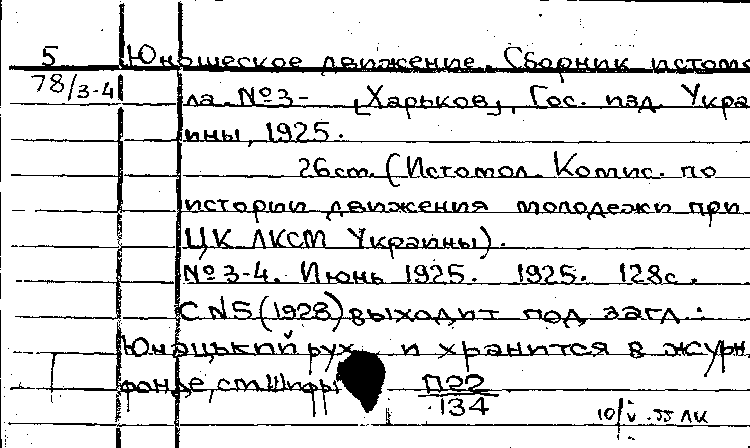 5 Юношеское движение. Сборник истомо
78/3-4 ла. №3- [Харьков], Гос. изд. Укра
ины, 1925.
26 cm. (Истомол. Комис. по
истории движения молодежи при
ЦК ЛКСМ Украины).
№3-4. Июнь 1925. 1925. 128с.
С №5 (1928) выходит под загл.:
Юнацький рух и хранится в журн.
фонде, см. Шифр П22/134
10/V.55 ЛК